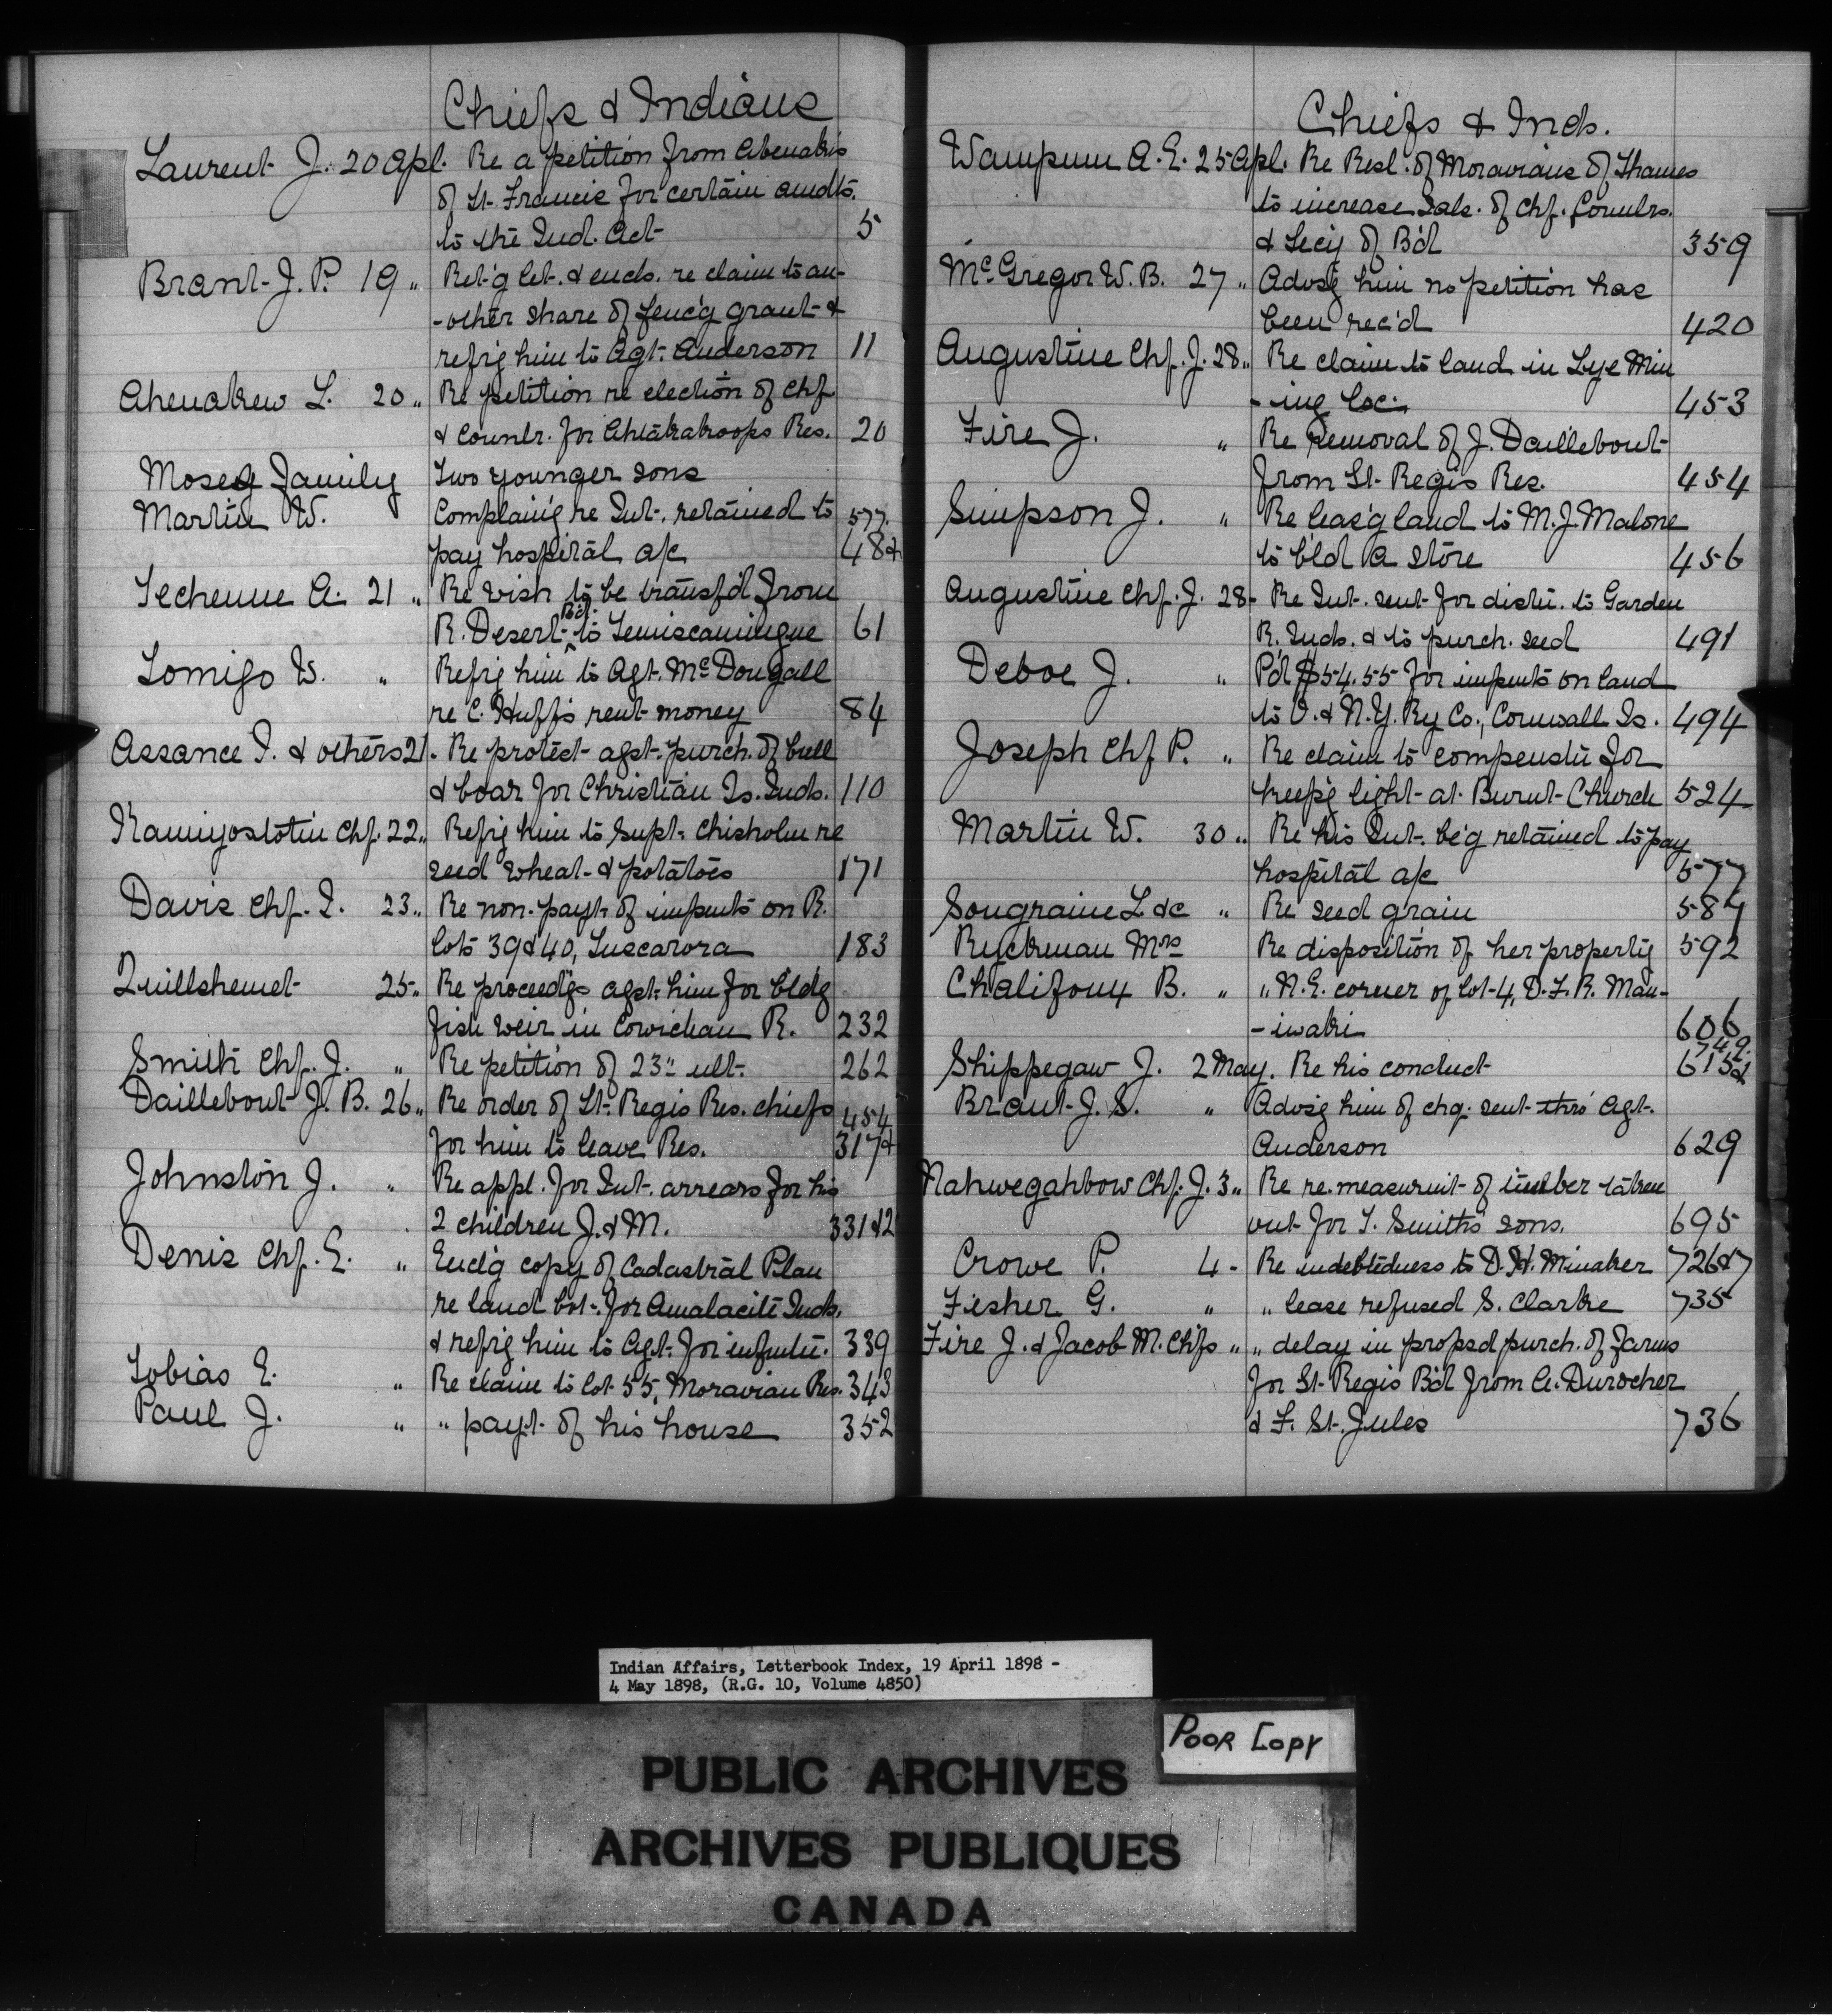 Chiefs & Indians
Laurent J. 20 Apl. Re a petition from Abenakis
of St. Francis for certain amdts.
to the Ind. Act 5
Brant J. P. 19 " Ret'g let. & encls. re claim to an-
-other share of fenc'g grant &
refrg him to Agt. Anderson 11
Ahenakew L. 20 " Re petition re election of Chf
& Counlr. for Ahtahakoops Res. 20
Moses Family Two younger sons
Martin W. Complain'g re Int. retained to 577.
pay hospital a/c 48&
Techenne A. 21 " Re wish to be transf'd from
R. Desert Bd. to Temiscamingue 61
Lomigo W. " Refrg him to Agt. McDougall
re C. Huff's rent money 84
Assance I. & others 21. Re protest agst. purch. of bull
& boar for Christian Is. Inds. 110
Kamiyostotin Chf. 22 " Refrg him to Supt. Chisholm re
seed wheat & potatoes 171
Davis Chf. I. 23 " Re non-payt. of imputs on R.
lots 39 & 40, Tuscarora 183
Quillshemet 25 " Re proceed'gs agst. him for bldg
fish weir in Cowichan R. 232
Smith Chf. J. " Re petition of 23" ult. 262
Daillebout J. B. 26 " Re order of St. Regis Res. chiefs 454
for him to leave Res. 317&
Johnston J. " Re appl. for Int. arrears for his
2 children J. & M. 331&2
Denis Chf. E. " Encl'g copy of Cadastral Plan
re land bot. for Amalacite Inds.
& refrg him to Agt. for infmtn. 339
Tobias E. " Re claim to lot 55, Moravian Res. 343
Paul J. " " payt. of his house 352
Chiefs & Inds.
Wampum A. E. 25 Apl. Re Resl. of Moravians of Thames
to increase Sals. of Chf. Counlrs.
& Secy of B'd 359
McGregor W. B. 27 " Advsg him no petition has
been rec'd 420
Augustine Chf. J. 28 " Re claim to land in Lye Min
-ing Loc. 453
Fire J. " Re removal of J. Daillebout
from St. Regis Res. 454
Simpson J. " Re leas'g land to M. J. Malone
to b'ld a store 456
Augustine Chf. J. 28- Re Int. sent for distn. to Garden
R. Inds. & to purch. seed 491
Deboe J. " P'd $54.55 for imputs on land
to O. & N.Y. Ry Co., Cornwall Is. 494
Joseph Chf P. " Re claim to compenstn for
keep'g light at Burnt Church 524
Martin W. 30 " Re his Int. be'g retained to pay
hospital a/c 577
Sougraine L &c " Re seed grain 587
Ryckman Mrs Re disposition of her property 592
Chalifoux B. " " N.E. corner of lot 4, D.F.R. Man-
-iwaki 606
Shippegaw J. 2 May. Re his conduct 749. 613&
Brant J. S. " Advsg him of chq. sent thro' Agt.
Anderson 629
Nahwegahbow Chf. J. 3 " Re re.measurmt of timber taken
out for T. Smith's sons. 695
Crowe P. 4 - Re indebtedness to D. H. Minaker 726&7
Fisher G. " " lease refused S. Clarke 735
Fire J. & Jacob M. Chfs " " delay in propsd purch. of farms
for St. Regis B'd from A. Durocher
& F. St. Jules 736
Indian Affairs, Letterbook Index, 19 April 1898 -
4 May 1898, (R.G. 10, Volume 4850)
POOR COPY
PUBLIC ARCHIVES
ARCHIVES PUBLIQUES
CANADA